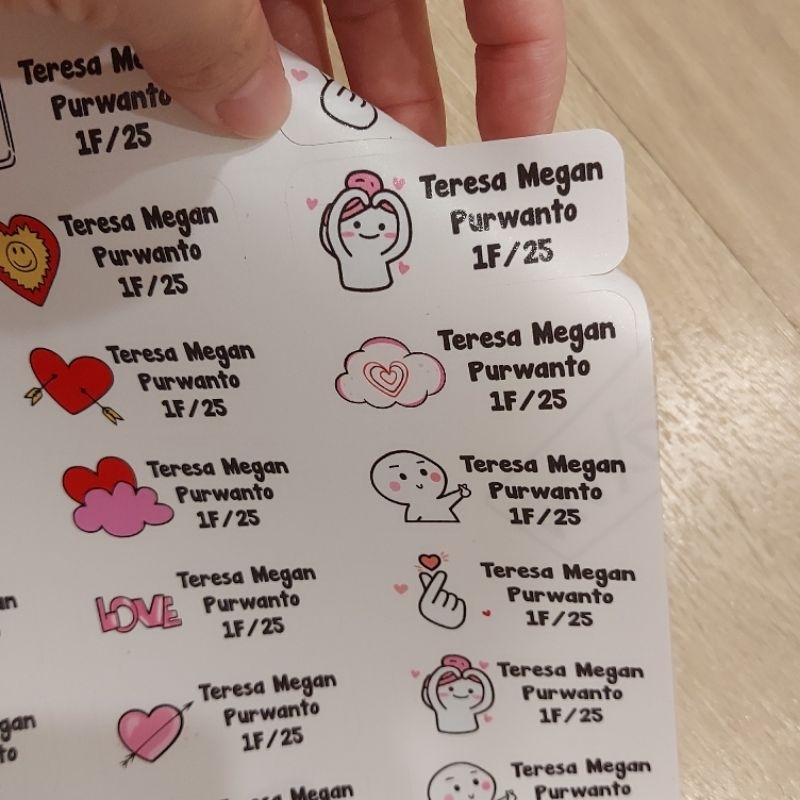 Teresa
Purwanto
1F/25
Teresa Megan
Purwanto
1F/25
Teresa Megan
Purwanto
1F/25
Teresa Megan
Purwanto
1F/25
Teresa Megan
Purwanto
1F/25
Teresa Megan
Purwanto
1F/25
Teresa Megan
Purwanto
1F/25
LOVE
Teresa Megan
Purwanto
1F/25
Teresa Megan
Purwanto
1F/25
Teresa Megan
Purwanto
1F/25
Teresa Megan
Purwanto
1F/25
Megan
Teresa Megan
Purwanto